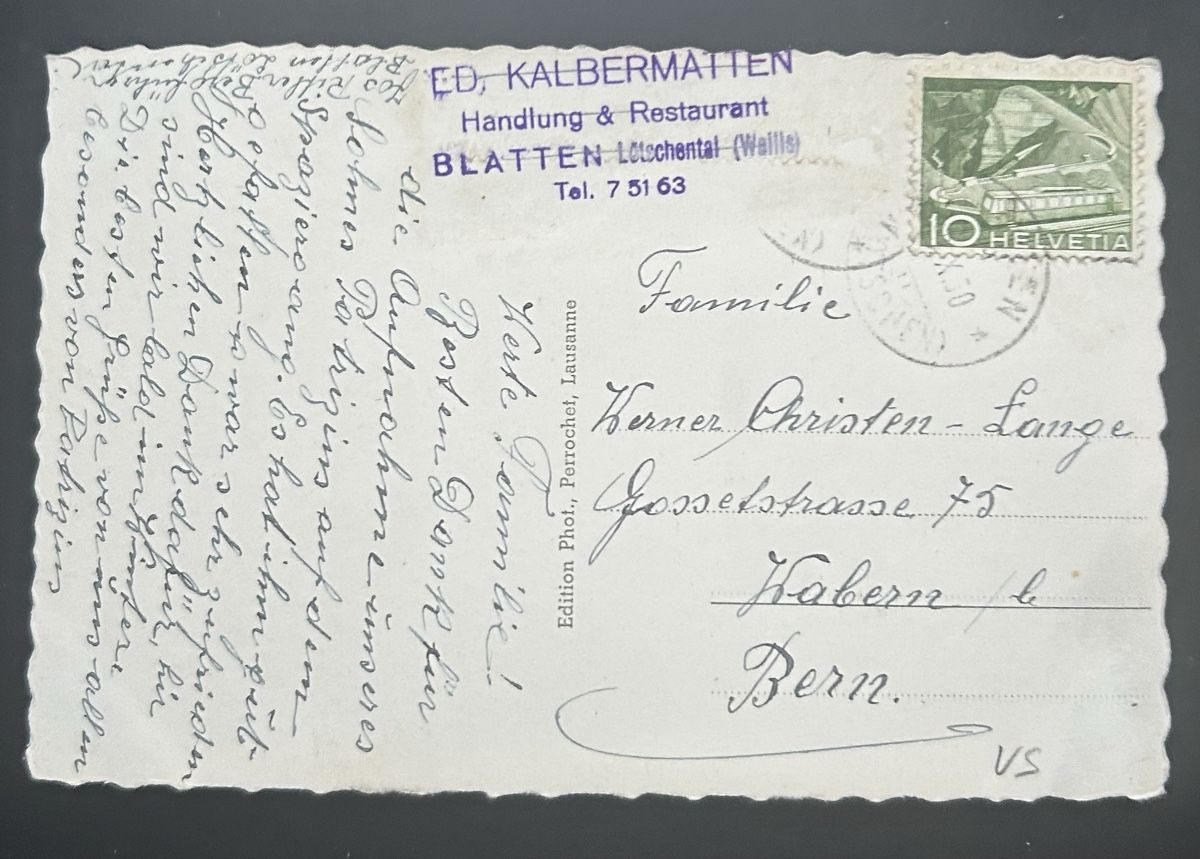 ED. KALBERMATTEN
Handlung & Restaurant
BLATTEN Lötschental (Wallis)
Tel. 7 51 63
10 HELVETIA
Familie
Werner Christen - Lange
Gossetstrasse 75
Wabern / b
Bern.
VS
Edition Phot., Perrochet, Lausanne
Werte Familie!
Besten Dank für
die Aufnahme unseres
Sohnes Patrizius auf dem
Spaziergang. Es hat ihm gut
gefallen & war sehr zufrieden
Herzlichen Dank dafür,
sind wir bald im Winter
Die besten Grüße von uns allen
besonders von Patrizius
Jos Ritler Bergführer
Blatten Lötschental